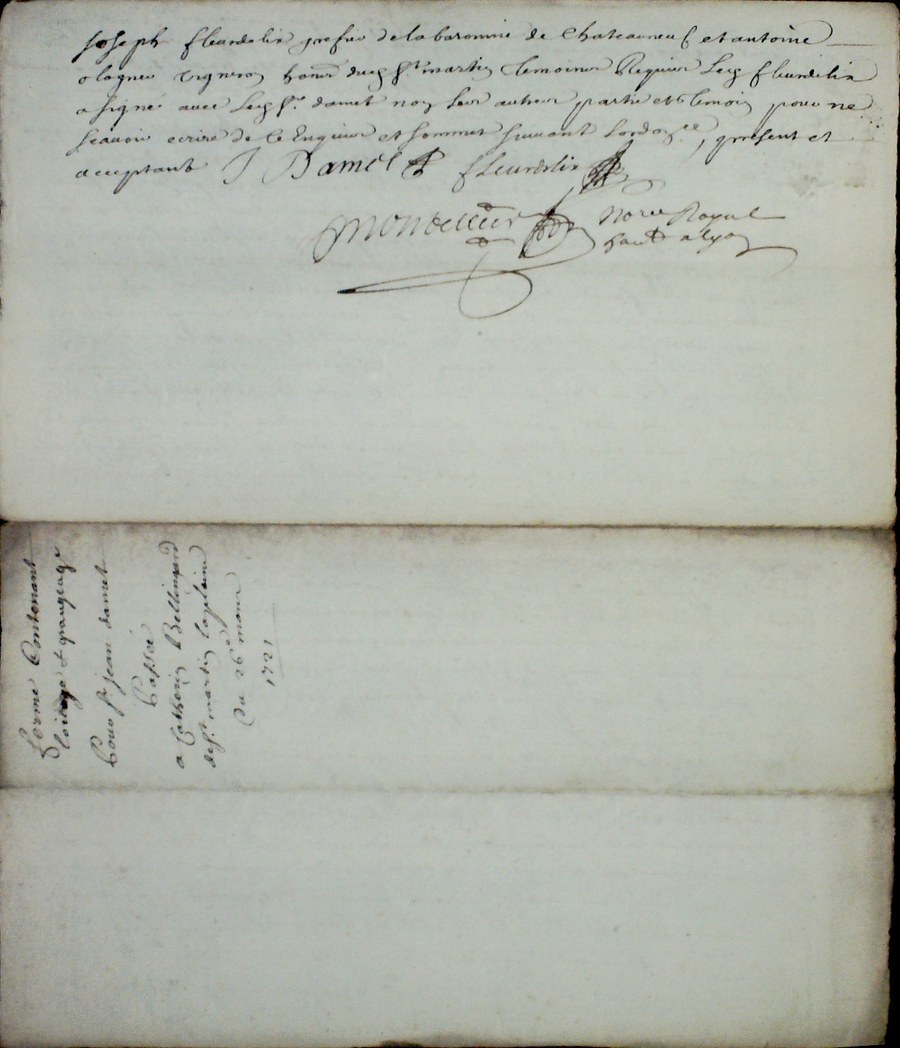 Joseph fleurdelix greffier de la baronnie de Chateauneuf et antoine
olagner vigneron hant dud st martin temoins Requis Led fleurdelix
a signé avec led sr. damet non leur autres partie et temoin pour ne
scavoir ecrire de ce Enquis et sommes suivant Lordoce, present et
acceptant J Damet fleurdelix
Nore Royal
hant a lyon
ferme Contenant
& grangeage
Pour sr jean damet
Passée
a Catherin Bellingard
de st. martin laplaine
Du 26e mars
1721